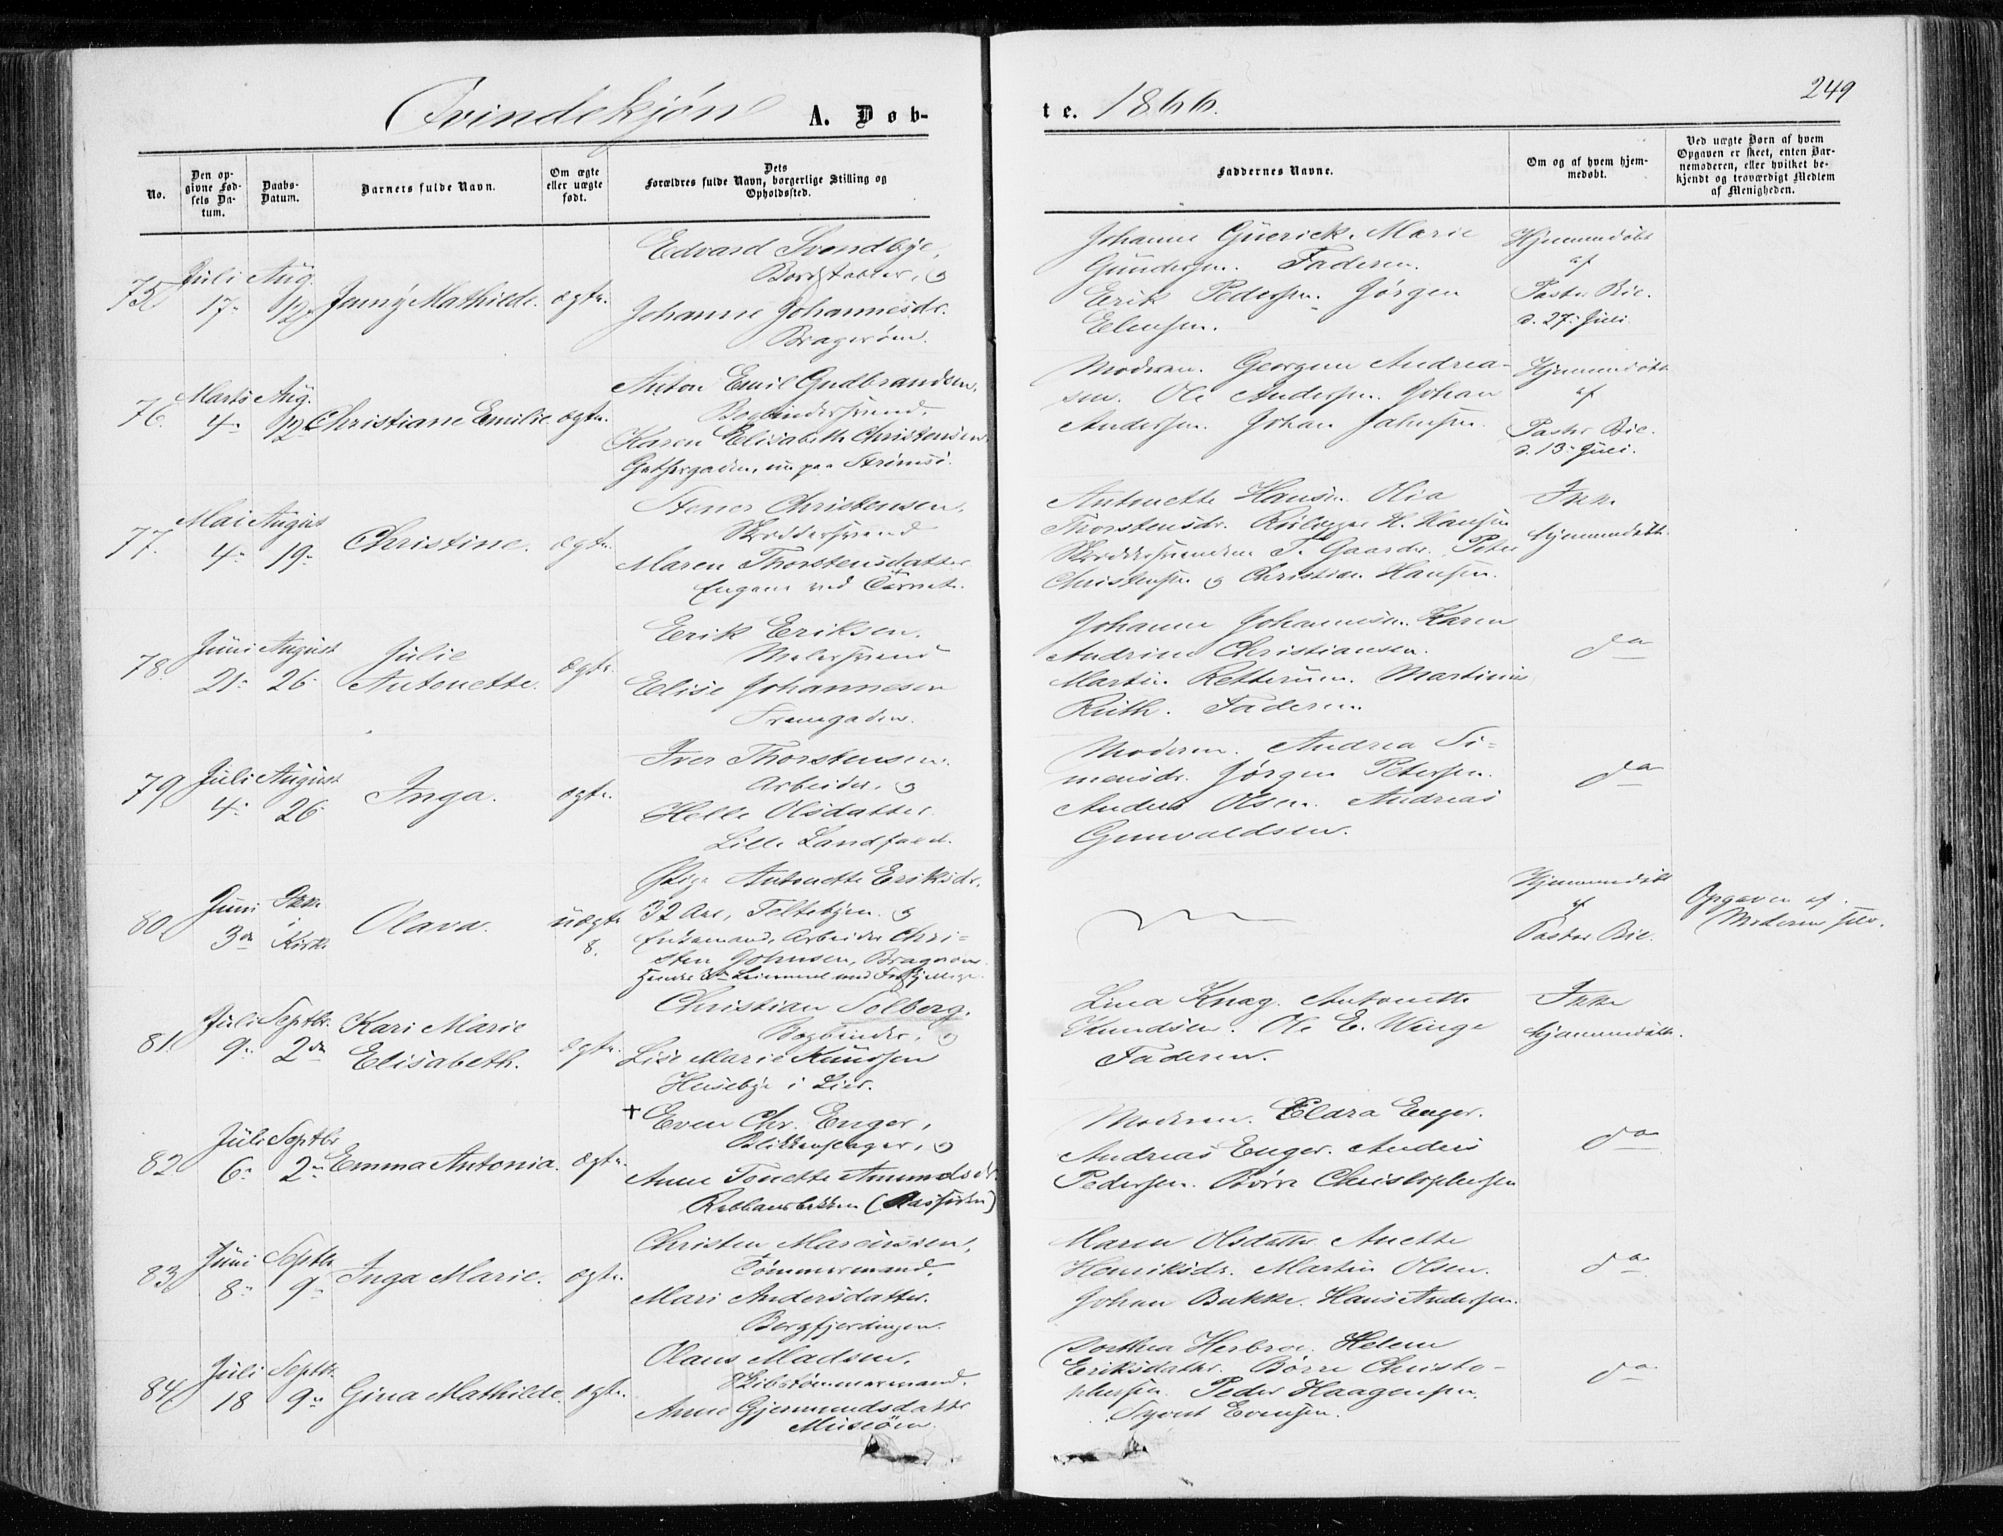 249
Qvindekjøn A. Døb-
te. 1866.
No.
Den op-
givne Fød-
sels Da-
tum.
Daabs-
Datum.
Barnets fulde Navn.
Om ægte
eller uægte
født.
Dets
Forældres fulde Navn, borgerlige Stilling og
Opholdssted.
Faddernes Navne.
Om og af hvem hjem-
medøbt.
Ved uægte Børn af hvem
Opgaven er skeet, enten Bar-
nemoderen, eller hvilket be-
kjendt og troværdigt Medlem
af Menigheden.
75
Juli
17
Aug.
12
Jenny Mathilde.
ægte.
Edvard Svendbye,
Bordstabler, og
Johanne Johannesdr.
Bragerøen.
Johanne Guerick. Marie
Gundersen. Faderen.
Erik Pedersen. Jørgen
Ellensen.
Hjemmedøbt
af
Pastor Bie.
d. 27 Juli.
76
Marts
4
Aug.
12
Christiane Emilie
ægte.
Anton Emil Gudbrandsen,
Bogbindersvend,
Karen Elisabeth Christensen
paa Strømsø.
Moderen. Georgine Andrea-
sen. Ole Andersen. Johan
Andersen. Johan Jahnsen.
Hjemmedøbt
af
Pastor Bie.
d. 13 Juli.
77.
Mai
4
August
19
Christine.
ægte.
Stener Christensen,
Skræddersvend
Maren Thorstensdatter
Engene ved Taarnet.
Antonette Hansen. Olia
Thorstensdr. H. Hansen
Skræddersvendene T. Gaarder. Peter
Christensen og Christian Hansen.
Ikke
hjemmedøbt.
78.
Juni
21
August
26
Julie
Antonette.
ægte.
Erik Eriksen.
Malersvend
Elise Johannesen
Tverrgaden.
Johanne Johannesen. Karen
Andrine Christiansen.
Martin Retterum. Martinius
Ruth. Faderen.
do
79
Juli
4
August
26
Inga.
ægte.
Iver Thorstensen.
Arbeider, og
Helle Olsdatter.
Lille Landfald.
Moderen. Andrea Si-
mensdr. Jørgen Petersen.
Anders Olsen. Andreas
Gunvaldsen.
do
80
Juni
3die
Ikke
i
Kirke
Olava.
uægte
8.
Pige Antonette Eriksdr.
32 Aar, Toltebyen. og
Enkemand, Arbeider Chri-
sten Johnsen, Bragerøen.
Hjemmedøbt
af
Pastor Bie.
Opgaven af
Moderen selv.
81
Juli
9
Septbr.
2den
Kari Marie
Elisabeth.
ægte.
Christian Solberg.
Bogbinder, og
Lise Marie Knudsen
Husebye i Lier.
Lina Knag. Antonette
Knudsen. Ole E. Winge
Faderen.
Ikke
hjemmedøbt.
82
Juli
6
Septbr
2
Emma Antonia.
ægte.
+ Even Chr. Enger,
Blikkenslager, og
Anne Tonette Amundsdr.
Moderen. Clara Enger.
Andreas Enger. Anders
Pedersen. Børre Christophersen
do
83
Juni
8
Septbr
9
Inga Marie.
ægte.
Christen Marcussen,
Tømmermand.
Mari Andersdatter.
Bergfjerdingen.
Maren Olsdatter Anette
Henriksdr. Martin Olsen.
Johan Bakke. Hans Andersen.
do
84
Juli
18
Septbr.
9
Gina Mathilde.
ægte.
Olaus Madsen.
Skibstømmermand.
Anne Gjermundsdatter
Museøen.
Dorthea Herbroe. Helene
Eriksdatter. Børre Christo-
phersen. Peder Haagensen.
Syvert Evensen.
do